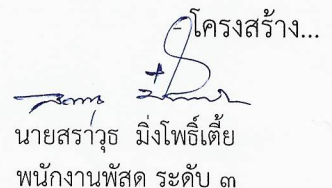 -โครงสร้าง...
นายสราวุธ มิ่งโพธิ์เตี้ย
พนักงานพัสดุ ระดับ ๓